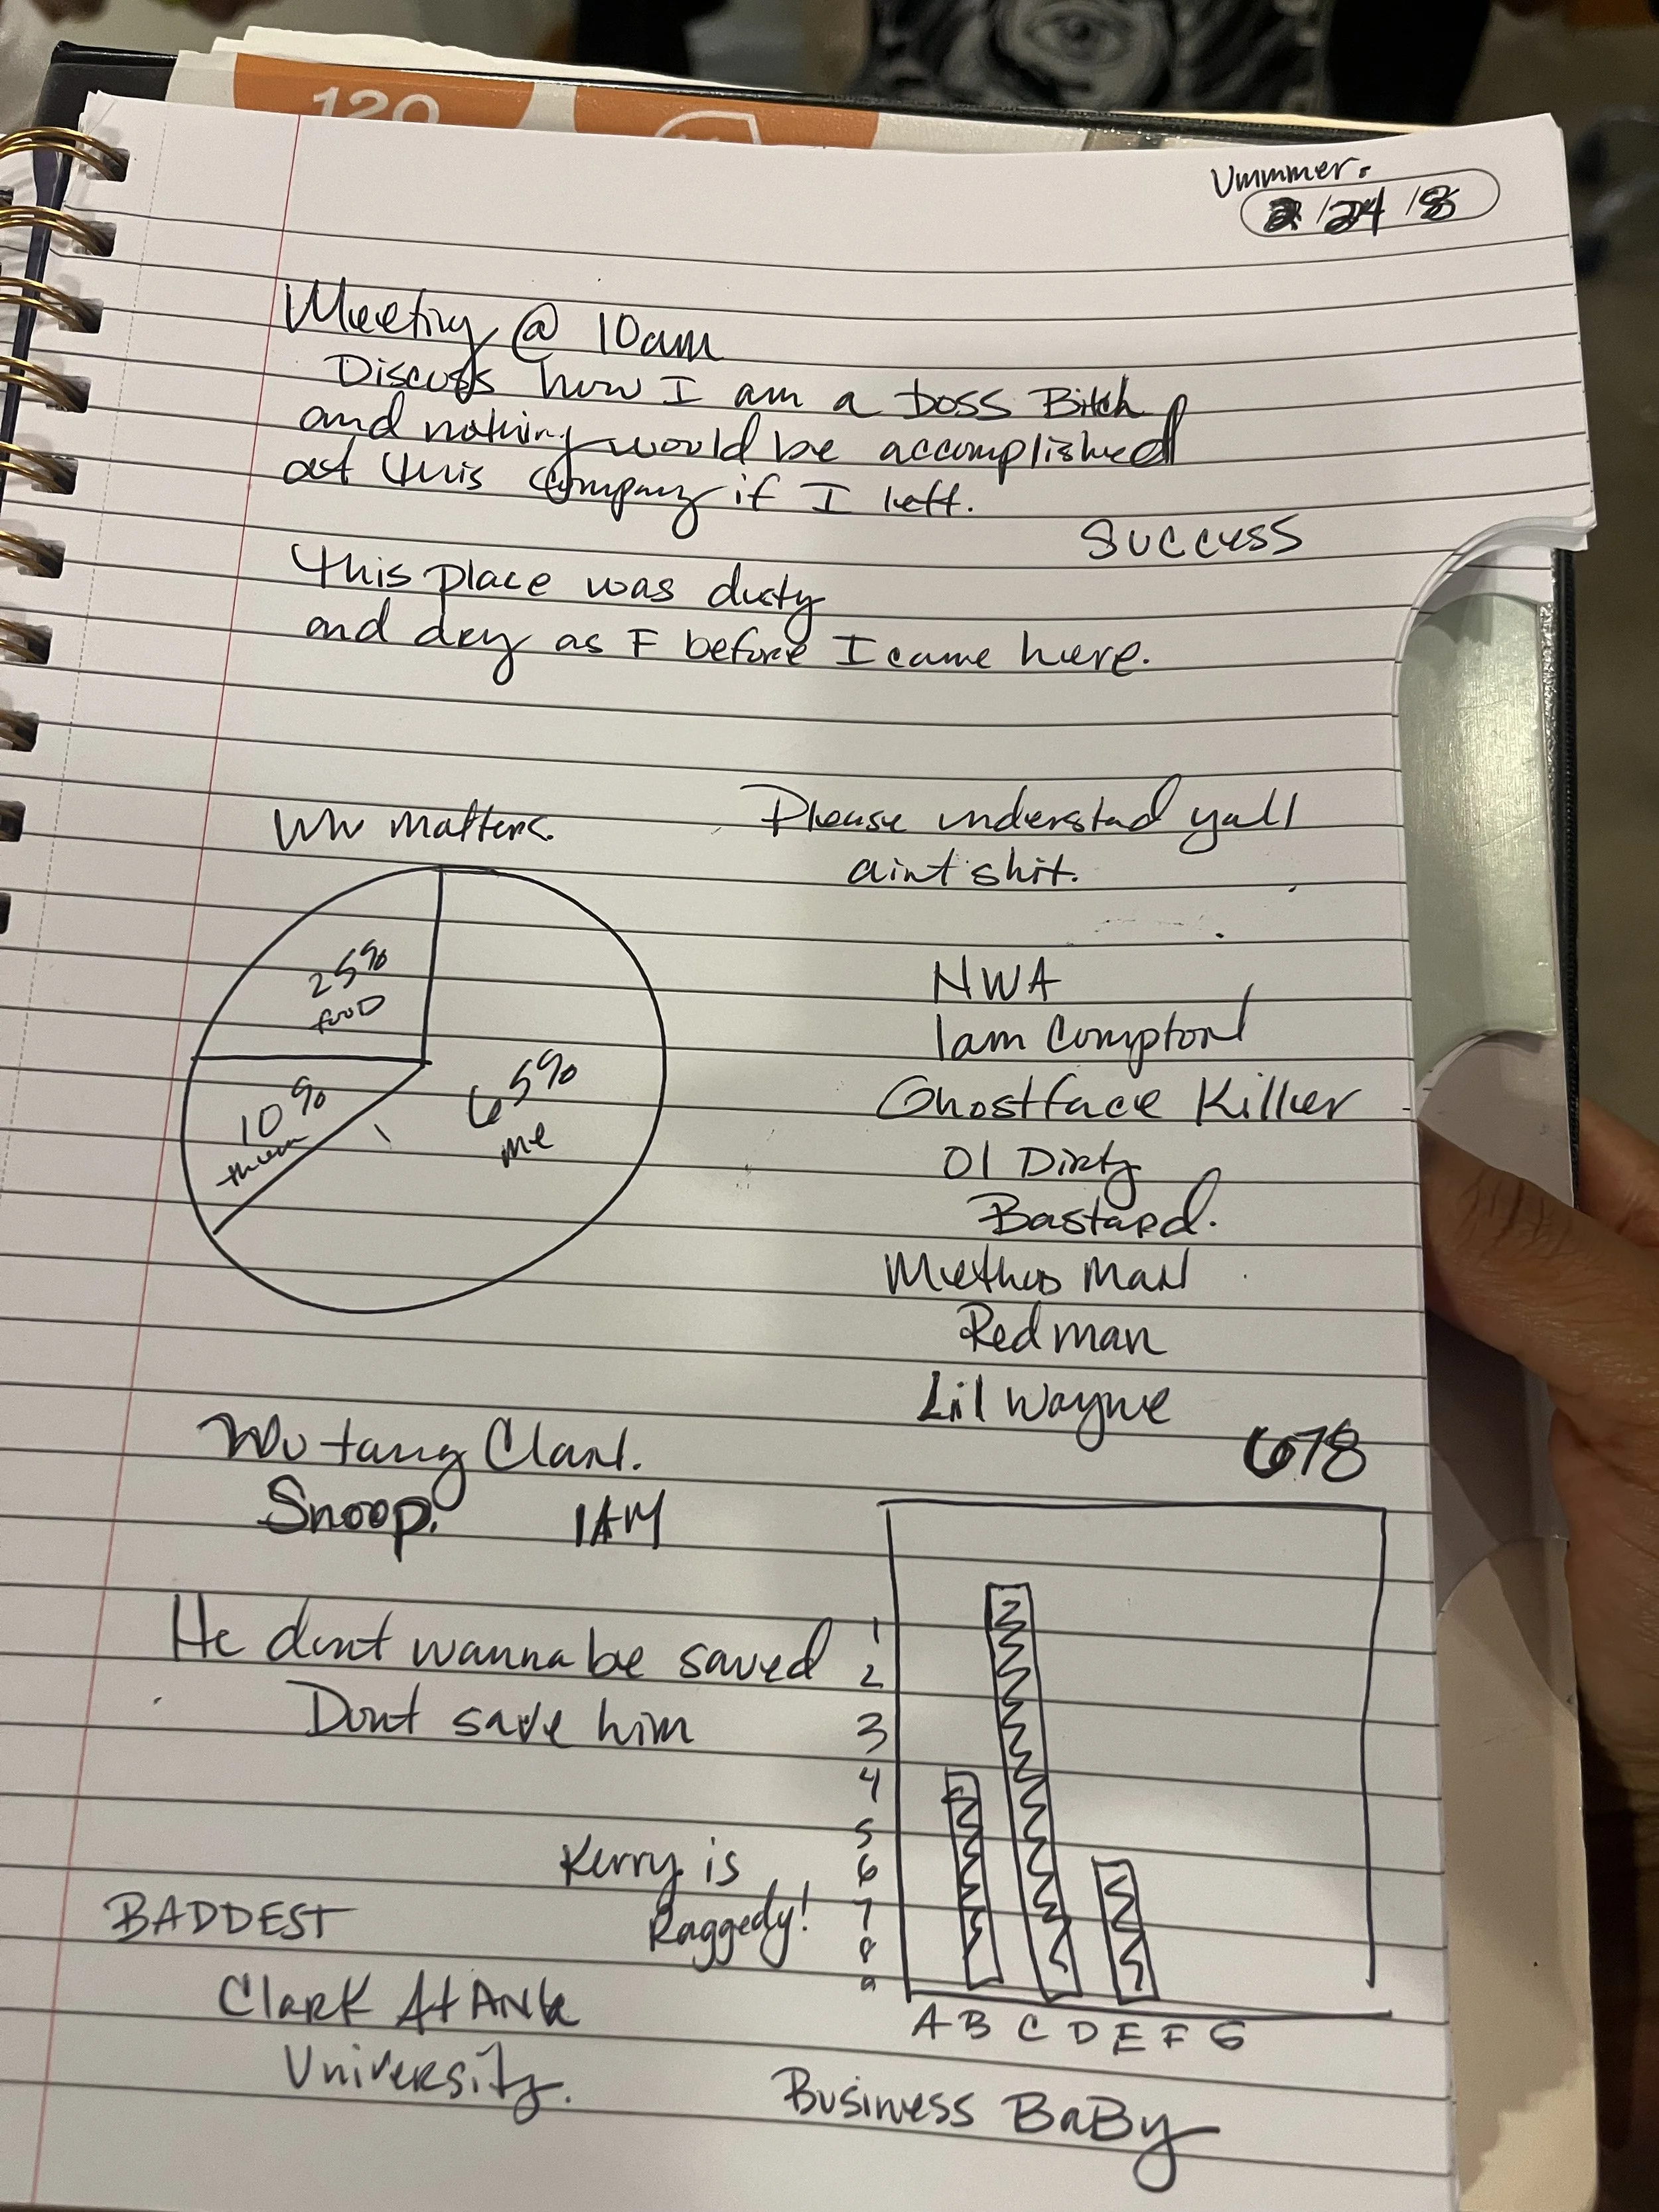 120
Ummmer.
2/24/8
Meeting @ 10am
Discuss how I am a boss Bitch
and nothing would be accomplished
at this company if I left.
SUCCESS
this place was dusty
and dry as F before I came here.
Who matters.
25%
food
10%
them
65%
me
Please understad yall
aint shit.
NWA
Iam Compton
Ghostface Killer
Ol Dirty
Bastard.
Method Man
Redman
Lil Wayne
678
Wu tang Clan.
Snoop. IAM
He dont wanna be saved
Dont save him
Kerry is
Raggedy!
BADDEST
Clark Atlanta
University.
1
2
3
4
5
6
7
8
9
A B C D E F G
Business BaBy